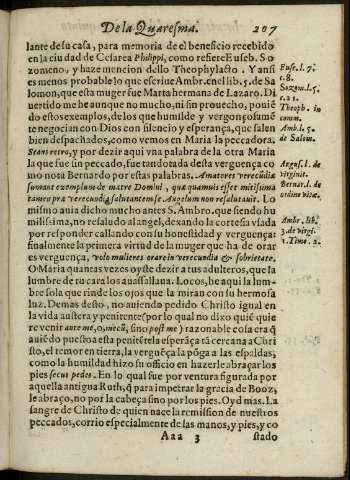 De la Quaresma.
207
lante de su casa, para memoria de el beneficio recebido
en la ciudad de Cesarea Philippi, como refiere Euseb. So
zomeno, y haze mencion dello Theophylasto. Y ansi
es menos probable lo que escriue Ambr. en el lib. 5. de Sa
lomon, que esta muger fue Marta hermana de Lazaro. Di
uertido me he aunque no mucho, ni sin prouecho, ponié
do estos exemplos, de los que humilde y vergonçosamẽ
te negocian con Dios con silencio y esperança, que salen
bien despachados, como vemos en Maria la peccadora.
Stans retro, y por dezir aqui vna palabra de la otra Maria
la que fue sin peccado, fue tan dotada desta verguença co
mo nota Bernardo por estas palabras. Amatores verecūdiæ
sumant exemplum de matre Domini, quæ quamuis esset mitissima
tamen præ verecundia salutantem se Angelum non resalutauit. Lo
mismo auia dicho mucho antes S. Ambro. que siendo hu
milissima, no resaludo al angel, dexando la cortesia vsada
por responder callando con su honestidad y verguença:
finalmente la primera virtud de la muger que ha de orar
es verguença, volo mulieres orare in verecundia & sobrietate.
O Maria quantas vezes oyste dezir a tus adulteros, que la
lumbre de tu cara los auassallaua. Locos, he aqui la lum-
bre sola que rinde los ojos que la miran con su hermosa
luz. Demas desto, no auiendo pedido Christo igual en
la vida austera y penitente (por lo qual no dixo quié quie
re venir ante me, o, mecū, sino post me) razonable cosa era q̃
auiẽdo puesto a esta penitẽte la esperãça tã cercana a Chri
sto, el temor en tierra, la vergueça la põga a las espaldas,
como la humildad hizo su officio en hazerle abraçar los
pies secus pedes. En lo qual fue por ventura figurada por
aquella antigua Ruth, q̃ para impetrar la gracia de Booz,
le abraço, no por la cabeça sino por los pies. Oyd mas. La
sangre de Christo de quien nace la remission de nuestros
peccados, corrio especialmente de las manos, y pies, y co
Aaa 3
stado
Euse. l. 7.
c. 8.
Sozom. l. 5.
c. 21.
Theoph. in
comm.
Amb. l. 5.
de Salom.
Augus. l. de
virginit.
Bernar. l. de
ordine vitæ,
Ambr. lib.
3. de virgi.
1. Timo. 2.